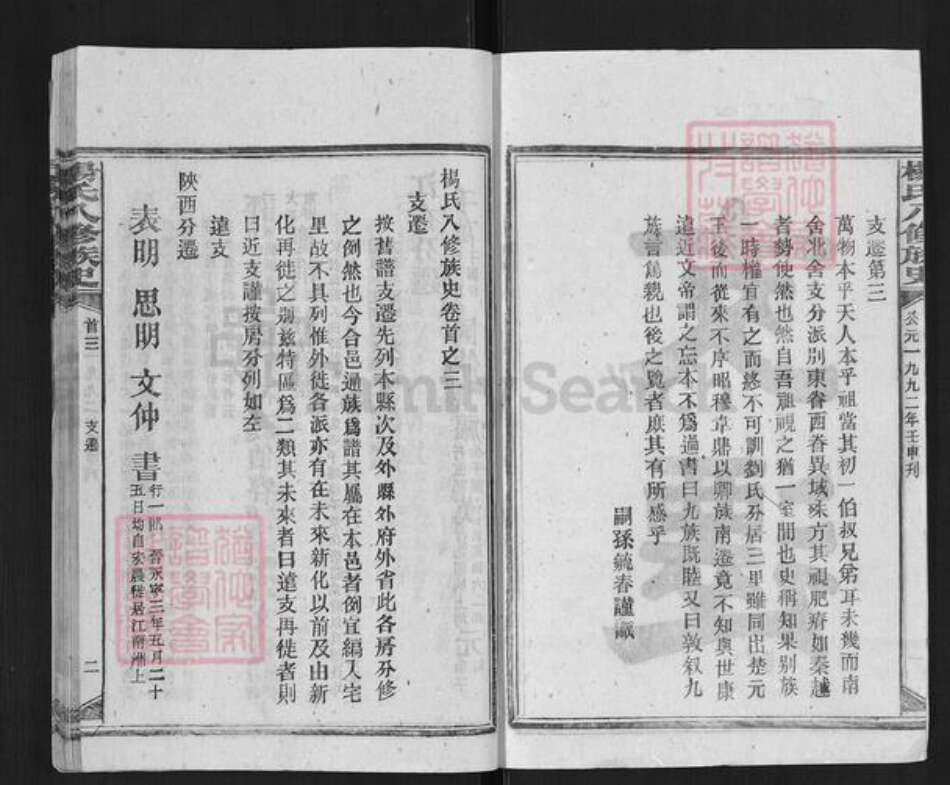 楊氏八修族史
公元一九九二年壬申刊
支遷第三
萬物本乎天人本乎祖當其初一伯叔兄弟耳未幾而南
舍北舍支分派別東省西眷異域殊方其視肥瘠如秦越
者勢使然也然自吾祖視之猶一室間也史稱知果別族
一時權宜有之而終不可訓劉氏分居三里雖同出楚元
王後而從來不序昭穆韋鼎以卿族南遷竟不知與世康
遠近文帝謂之忘本不為過書曰九族既睦又曰敦叙九
族言篤親也後之覽者庶其有所感乎
嗣孫毓春謹識
楊氏八修族史卷首之三
支遷
按舊譜支遷先列本縣次及外縣外府外省此各房分修
之例然也今合邑通族為譜其屬在本邑者例宜編入宅
里故不具列惟外徙各派亦有在未來新化以前及由新
化再徙之別茲特區為二類其未來者曰遠支再徙者則
曰近支謹按房分列如左
遠支
陝西分遷
表明 思明 文仲 書
行一郎 晉永寧三年五月二十
五日均自宏農徙居江南洲上
楊氏八修族史
首三
支遷
二
FamilySearch